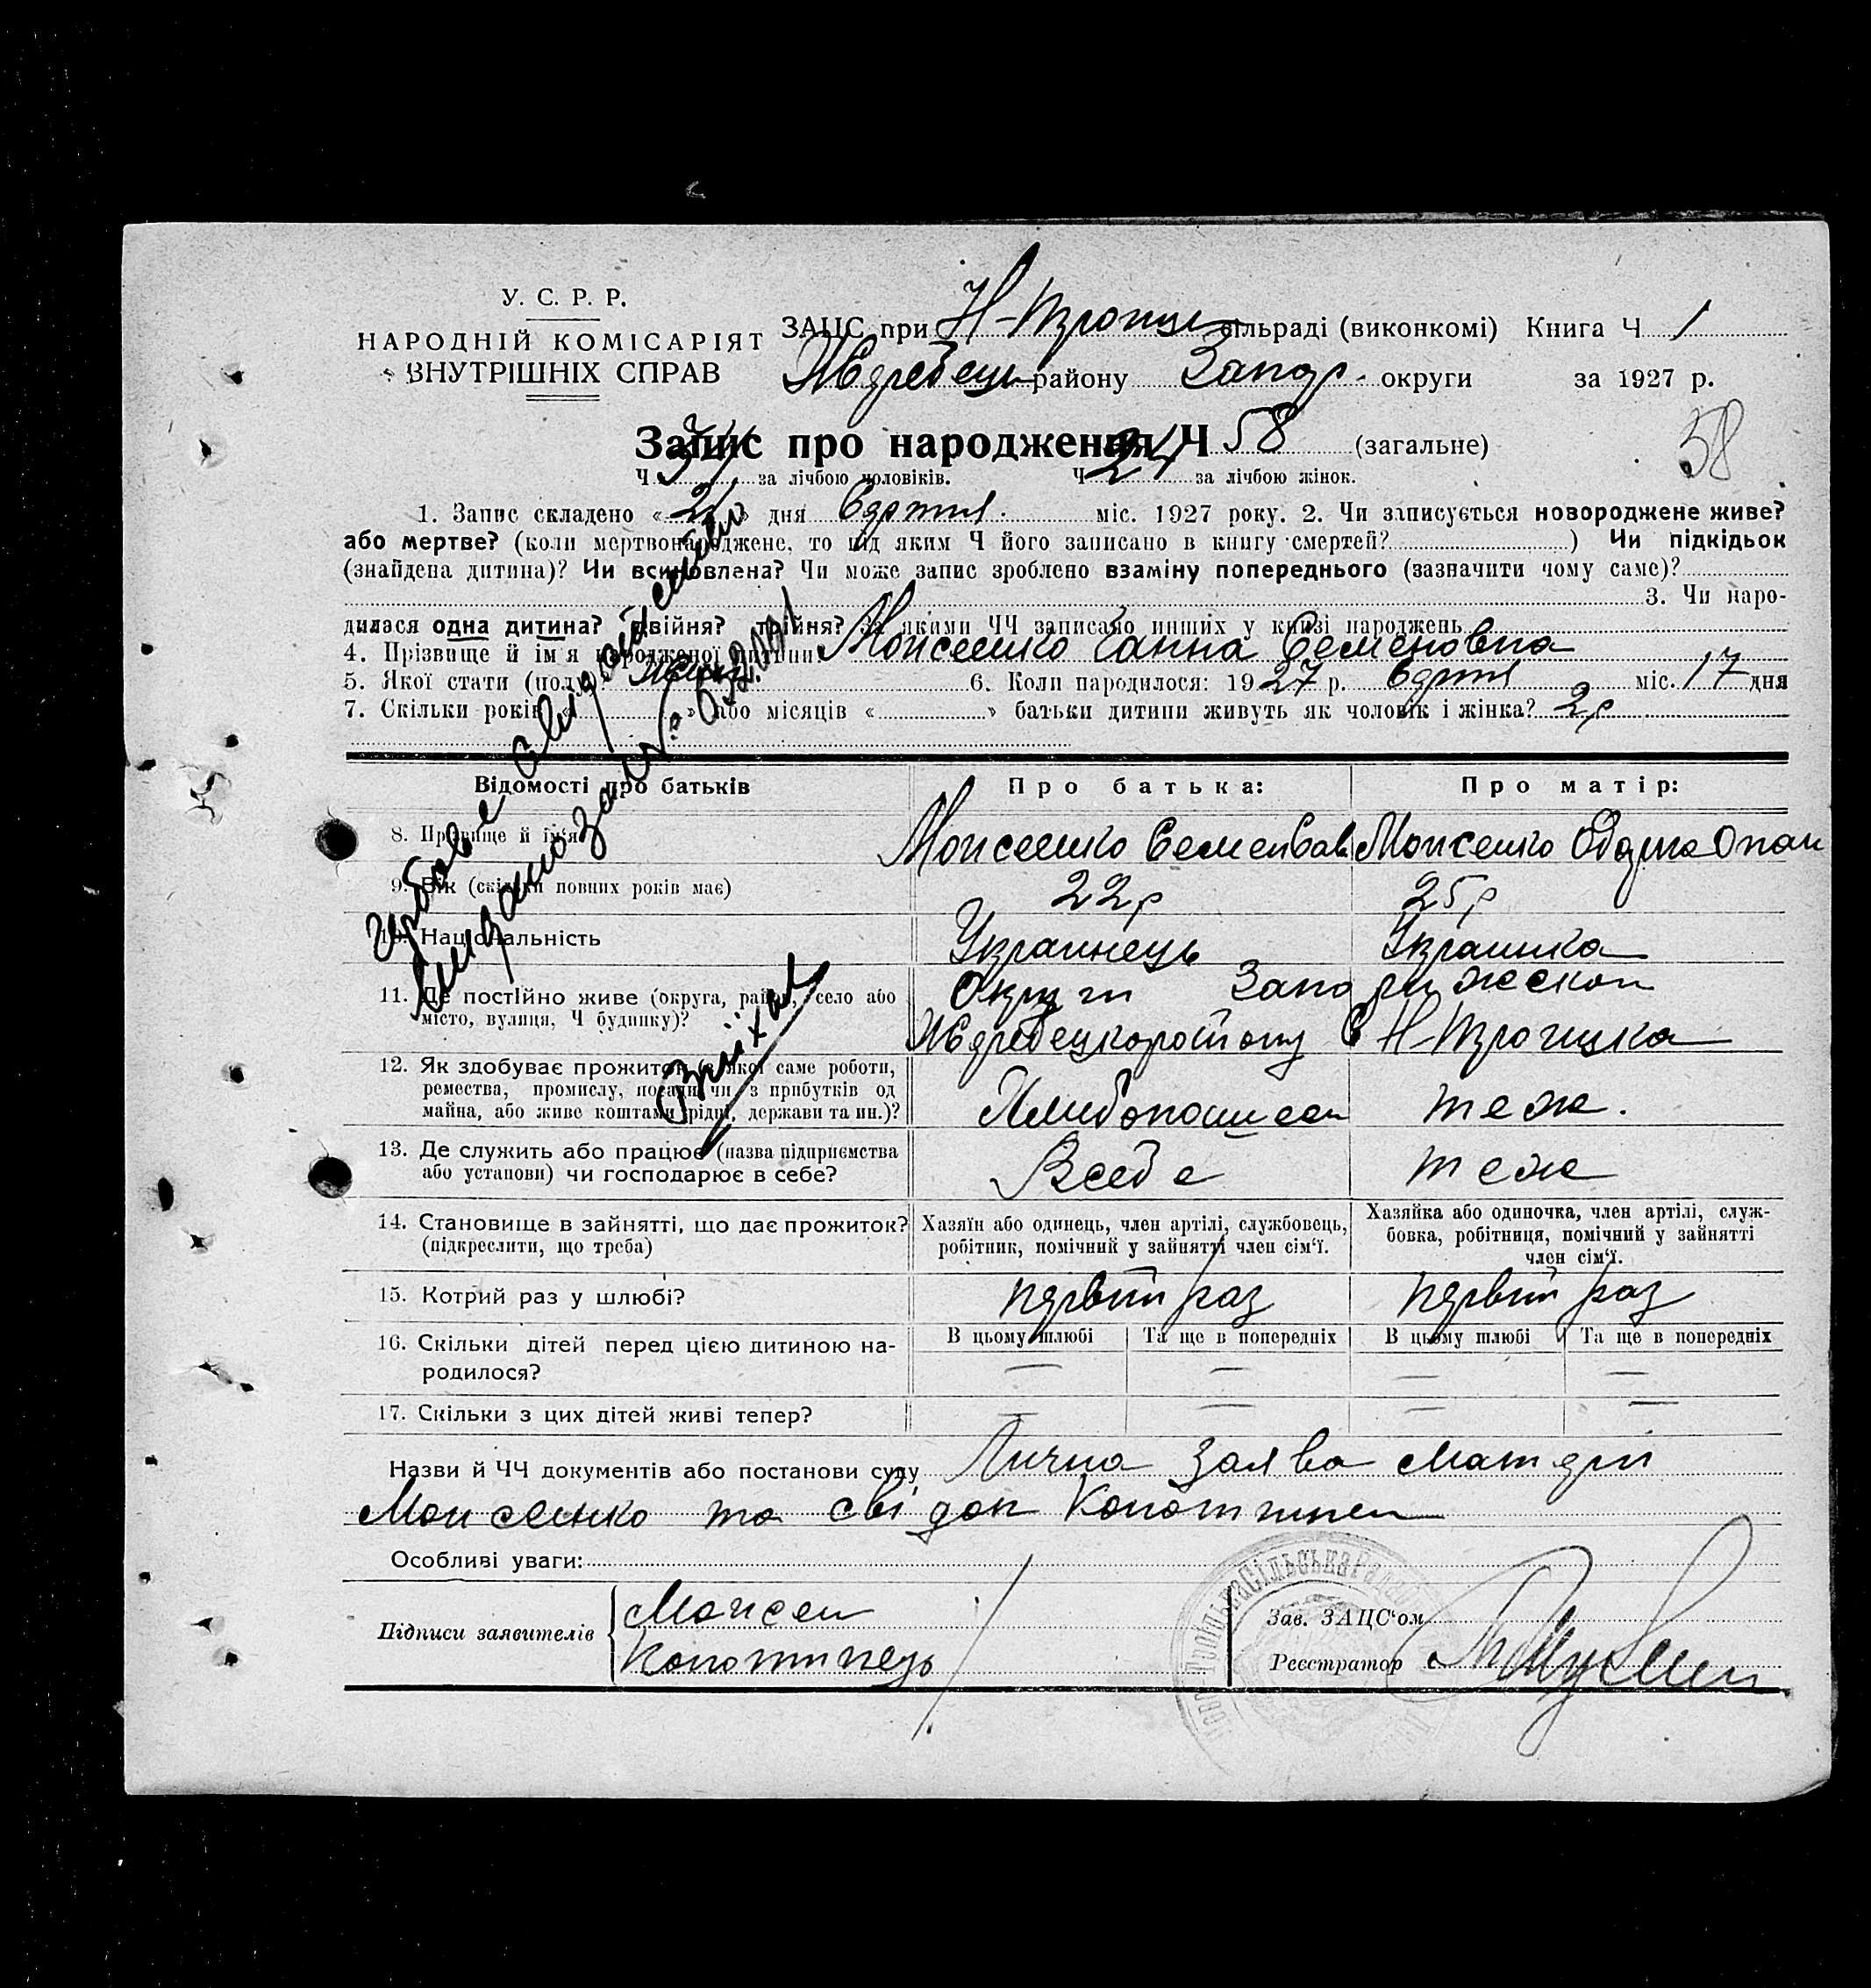 У. С. Р. Р.
НАРОДНІЙ КОМІСАРІЯТ
ВНУТРІШНІХ СПРАВ
ЗАЦС при Н-Троице сільраді (виконкомі) Книга Ч 1
Жеребецьк району Запор. округи за 1927 р.
Запис про народження Ч 58 (загальне)
58
Ч 34 за лічбою чоловіків. Ч 24 за лічбою жінок.
1. Запис складено « 21 » дня міс. 1927 року. 2. Чи записується новороджене живе?
або мертве? (коли мертвонароджене, то під яким Ч його записано в книгу смертей? ) Чи підкідьок
(знайдена дитина)? Чи всиновлена? Чи може запис зроблено взаміну попереднього (зазначити чому саме)?
3. Чи наро-
дилася одна дитина? двійня? трійня? За якими ЧЧ записано инших у книзі народжень
4. Прізвище й ім'я народженої дитини Моисеенко Ганна Семеновна
5. Якої стати (полу)? 6. Коли народилося: 1927 р. міс. 17 дня
7. Скільки років « » або місяців « » батьки дитини живуть як чоловік і жінка? 2р
Відомості про батьків Про батька: Про матір:
8. Прізвище й ім'я Моисеенко Семен Моисенко
9. Вік (скільки повних років має) 22р 25р
10. Національність Украинець Украинка
11. Де постійно живе (округа, район, село або Округи Запорижской
місто, вулиця, Ч будинку)? Жеребецкорайону С Н-Троицка
12. Як здобуває прожиток (з якої саме роботи,
ремества, промислу, посади чи з прибутків од
майна, або живе коштами рідні, держави та ин.)? теж.
13. Де служить або працює (назва підприємства
або установи) чи господарює в себе? Всебе теж
14. Становище в зайнятті, що дає прожиток? Хазяїн або одинець, член артілі, службовець, Хазяйка або одиночка, член артілі, служ-
(підкреслити, що треба) робітник, помічний у зайнятті член сім'ї. бовка, робітниця, помічний у зайнятті
член сім'ї.
15. Котрий раз у шлюбі? первий раз первий раз
16. Скільки дітей перед цією дитиною на- В цьому шлюбі Та ще в попередніх В цьому шлюбі Та ще в попередніх
родилося? — — — —
17. Скільки з цих дітей живі тепер? — — — —
Назви й ЧЧ документів або постанови суду Лична заява матери
Моисеенко та свідок
Особливі уваги:
Підписи заявителів Моисеен
Зав. ЗАЦС'ом
Реєстратор
Сільська Рада